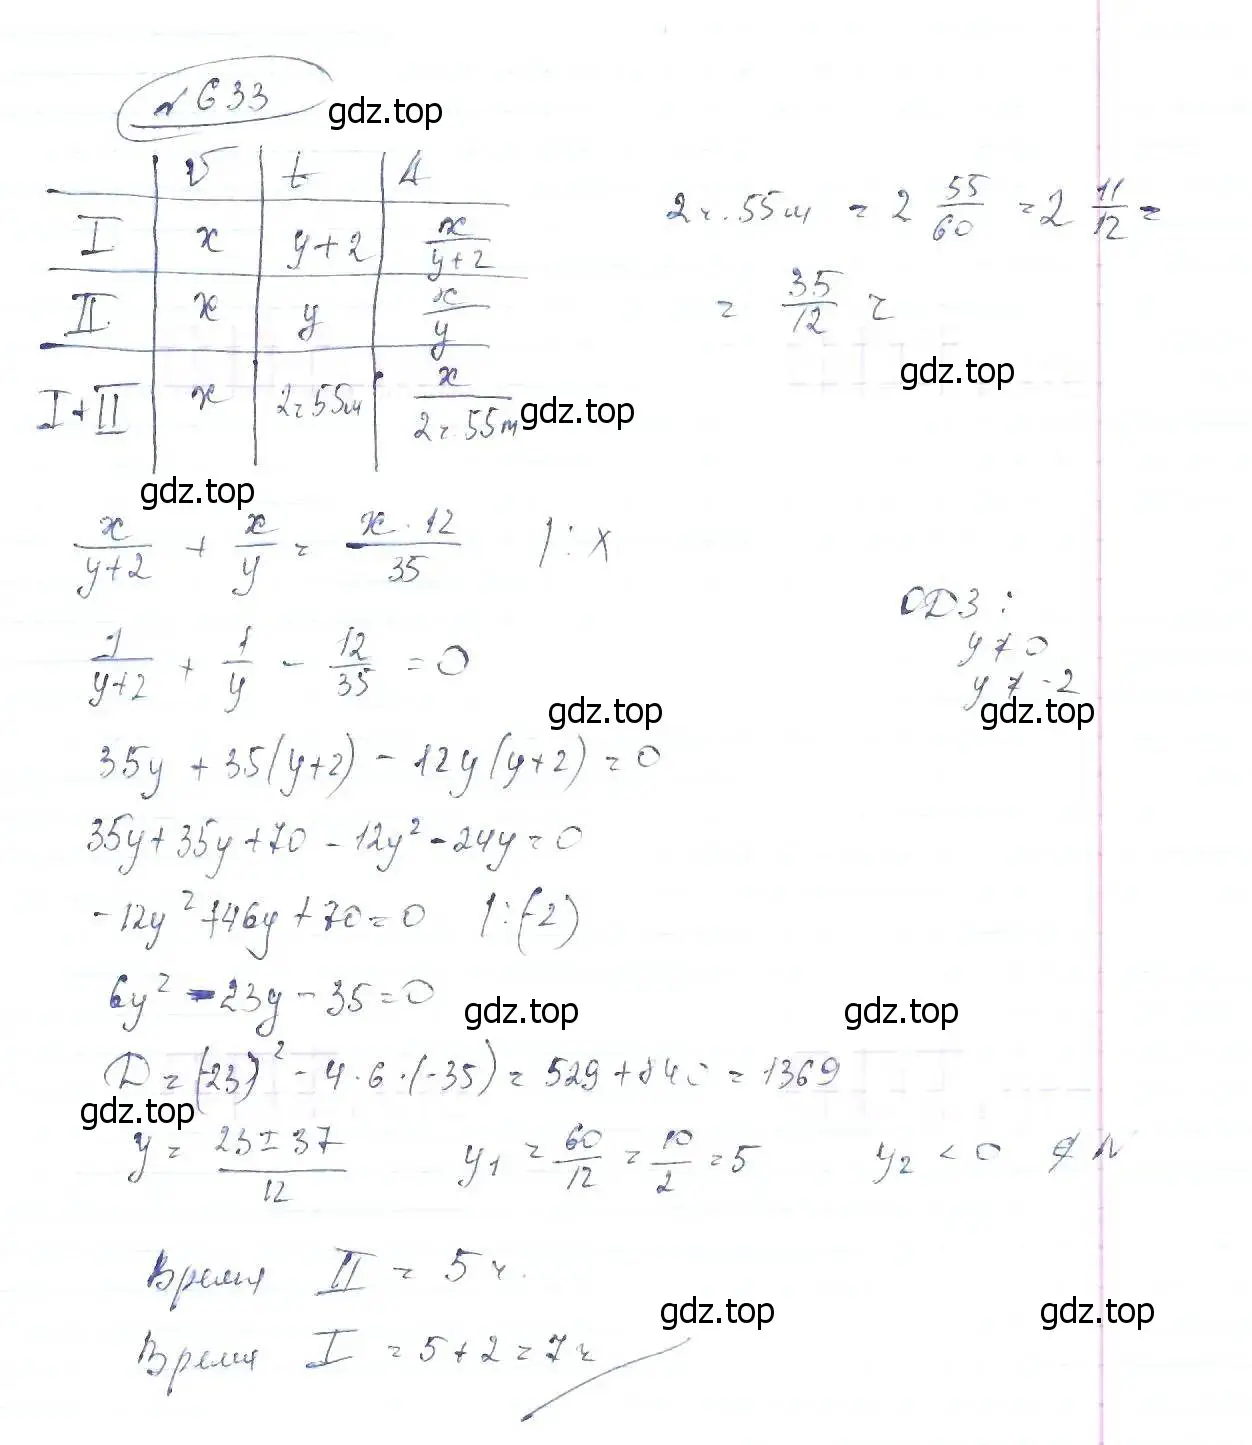 №633
gdz.top
V t A
I x y+2 x/(y+2)
II x y x/y
I+II x 2ч55м x/(2ч.55м)
2ч.55м = 2 55/60 = 2 11/12 =
= 35/12 ч
gdz.top
gdz.top
gdz.top
x/(y+2) + x/y = x·12/35 |: x
ОДЗ:
y ≠ 0
y ≠ -2
1/(y+2) + 1/y - 12/35 = 0
gdz.top
gdz.top
35y + 35(y+2) - 12y(y+2) = 0
35y + 35y + 70 - 12y² - 24y = 0
-12y² + 46y + 70 = 0 |: (-2)
6y² - 23y - 35 = 0
gdz.top
gdz.top
D = (-23)² - 4·6·(-35) = 529 + 840 = 1369
gdz.top
y = (23 ± 37)/12 y₁ = 60/12 = 10/2 = 5 y₂ < 0 ∉ N
Время II = 5 ч.
gdz.top
gdz.top
Время I = 5 + 2 = 7 ч